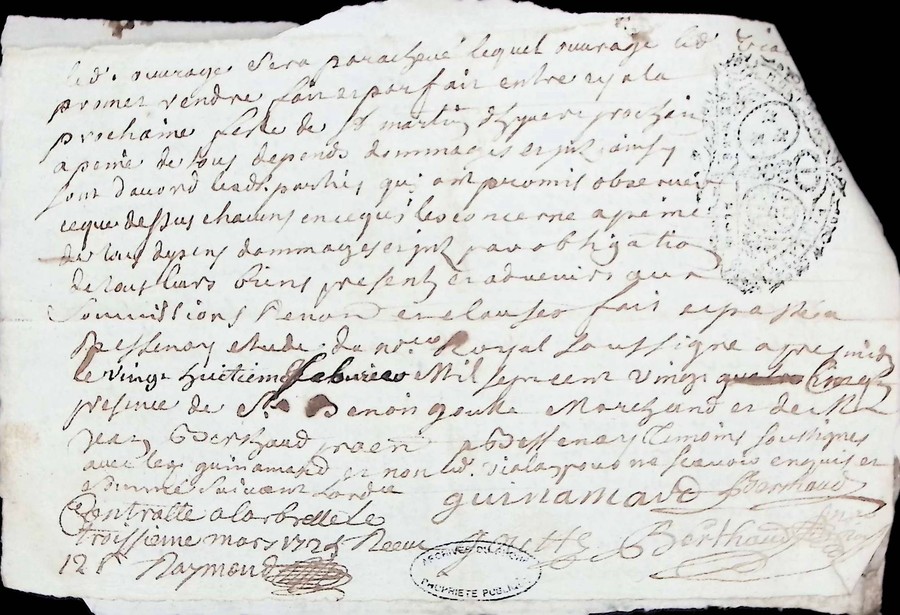 led. ouvrage sera parachevé lequel ouvrage led. viala
promet rendre fait et parfait entre cy a la
prochaine feste de St martin d'hyver prochain
a peine de tous depends dommages et jnt ainsy
sont d'acord lesd. parthies qui ont promis observer
ce que dessus chacuns en ce qui les concerne a peine
de tous depens dommages et jnt par obligation
de tous leurs biens presentz et advenirs aux
soumissions Renon et clauses fait et passé a
Bessenay etude du nore Royal soussigne apres midy
le vingt huitieme febvrier Mil sept cent vingt cinq
presence de Sr Benoit goutte Marchand et de
jean Berthaud a Bessenay temoins soussignes
avec led guinamand et non led. viala pour ne scavoir enquis et
somme suivant Lordce
guinamand Berthaud
Controlle a larbresle le
troissieme mars 1725 Receu
goutte Berthaud
12 s Raymond
ARCHIVES DU RHONE
PROPRIÉTÉ PUBLIQUE